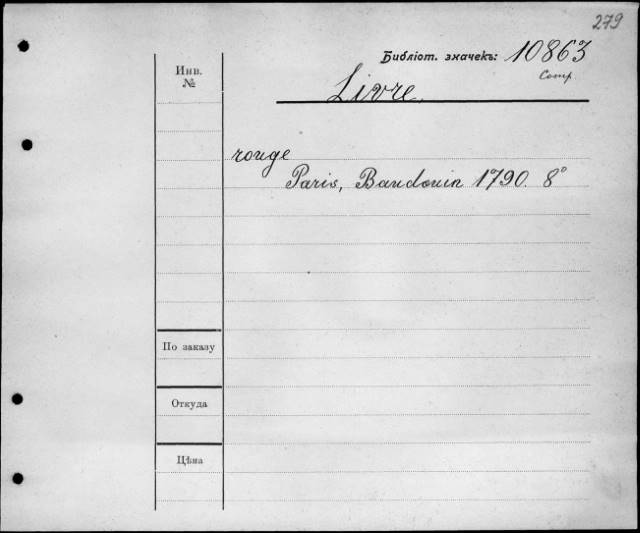 279
Библіот. значекъ: 10863
Comp.
Инв.
№
Livre
rouge
Paris, Baudouin 1790. 8°
По заказу
Откуда
Цѣна